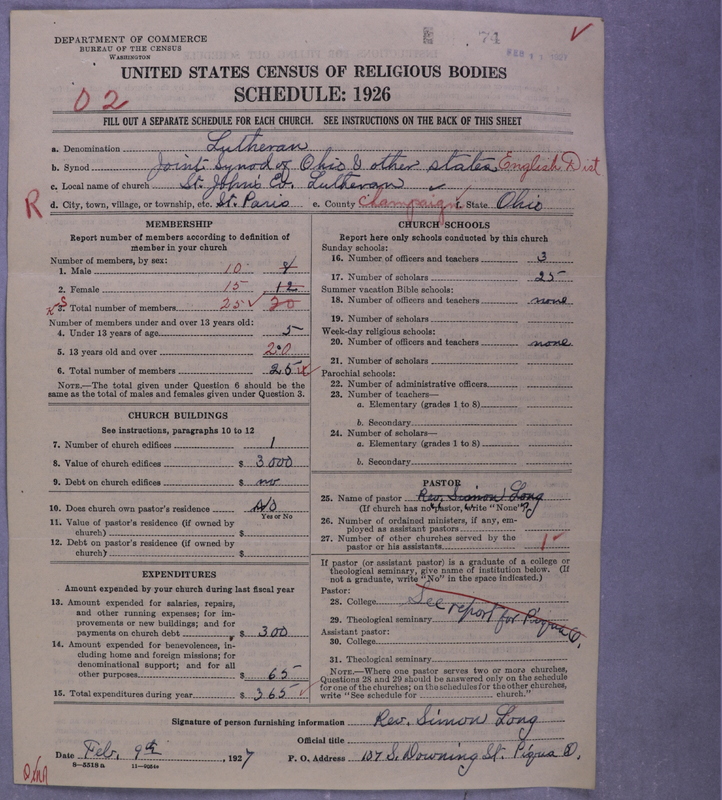 DEPARTMENT OF COMMERCE
BUREAU OF THE CENSUS
WASHINGTON
74
FEB 11 1927
UNITED STATES CENSUS OF RELIGIOUS BODIES
SCHEDULE: 1926
02
FILL OUT A SEPARATE SCHEDULE FOR EACH CHURCH. SEE INSTRUCTIONS ON THE BACK OF THIS SHEET
a. Denomination Lutheran
b. Synod Joint Synod of Ohio & other states English Dist
c. Local name of church St. John's Ev. Lutheran
R d. City, town, village, or township, etc. St. Paris e. County Champaign f. State Ohio
MEMBERSHIP
Report number of members according to definition of
member in your church
Number of members, by sex:
1. Male 10 8
2. Female 15 12
3. Total number of members 25 20
Number of members under and over 13 years old:
4. Under 13 years of age 5
5. 13 years old and over 20
6. Total number of members 25
NOTE.—The total given under Question 6 should be the
same as the total of males and females given under Question 3.
CHURCH BUILDINGS
See instructions, paragraphs 10 to 12
7. Number of church edifices 1
8. Value of church edifices $ 3000
9. Debt on church edifices $ no
10. Does church own pastor's residence No
Yes or No
11. Value of pastor's residence (if owned by
church) $
12. Debt on pastor's residence (if owned by
church) $
EXPENDITURES
Amount expended by your church during last fiscal year
13. Amount expended for salaries, repairs,
and other running expenses; for im-
provements or new buildings; and for
payments on church debt $ 300
14. Amount expended for benevolences, in-
cluding home and foreign missions; for
denominational support; and for all
other purposes $ 65
15. Total expenditures during year $ 365
CHURCH SCHOOLS
Report here only schools conducted by this church
Sunday schools:
16. Number of officers and teachers 3
17. Number of scholars 25
Summer vacation Bible schools:
18. Number of officers and teachers none
19. Number of scholars
Week-day religious schools:
20. Number of officers and teachers none
21. Number of scholars
Parochial schools:
22. Number of administrative officers
23. Number of teachers—
a. Elementary (grades 1 to 8)
b. Secondary
24. Number of scholars—
a. Elementary (grades 1 to 8)
b. Secondary
PASTOR
25. Name of pastor Rev. Simon Long
(If church has no pastor, write "None")
26. Number of ordained ministers, if any, em-
ployed as assistant pastors
27. Number of other churches served by the
pastor or his assistants 1
If pastor (or assistant pastor) is a graduate of a college or
theological seminary, give name of institution below. (If
not a graduate, write "No" in the space indicated.)
Pastor:
28. College
See report for Piqua O.
29. Theological seminary
Assistant pastor:
30. College
31. Theological seminary
NOTE.—Where one pastor serves two or more churches,
Questions 28 and 29 should be answered only on the schedule
for one of the churches; on the schedules for the other churches,
write "See schedule for church."
Signature of person furnishing information Rev. Simon Long
Official title
Date Feb. 9th, 1927 P. O. Address 137 S. Downing St. Piqua O.
8—5518a 11—9024